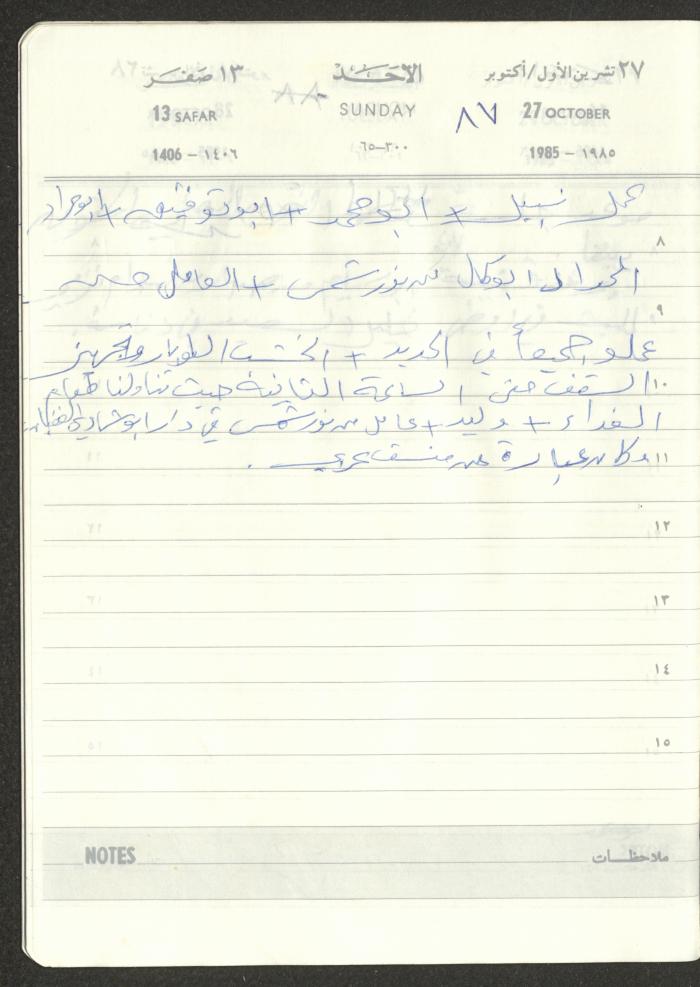 ٢٧ تشرين الأول/أكتوبر الأحَد ١٣ صَفَر
27 OCTOBER ٨٧ SUNDAY 13 SAFAR
1985 – ١٩٨٥ ٣٠٠–٦٥ 1406 – ١٤٠٦
عمل نبيل + ابو محمد + ابو توفيق + ابو جواد
٨
ابو كمال من نور شمس + العامل
٩
عملو جميعاً في الحديد + الخشب الطوبار وتجهيز
١٠ السقف حتى الساعة الثانية حيث تناولنا طعام
الغداء + وليد + عامل من نور شمس في دار ابو شادي
١١ وكان عبارة عن منسف عربي .
١٢
١٣
١٤
١٥
NOTES ملاحظات